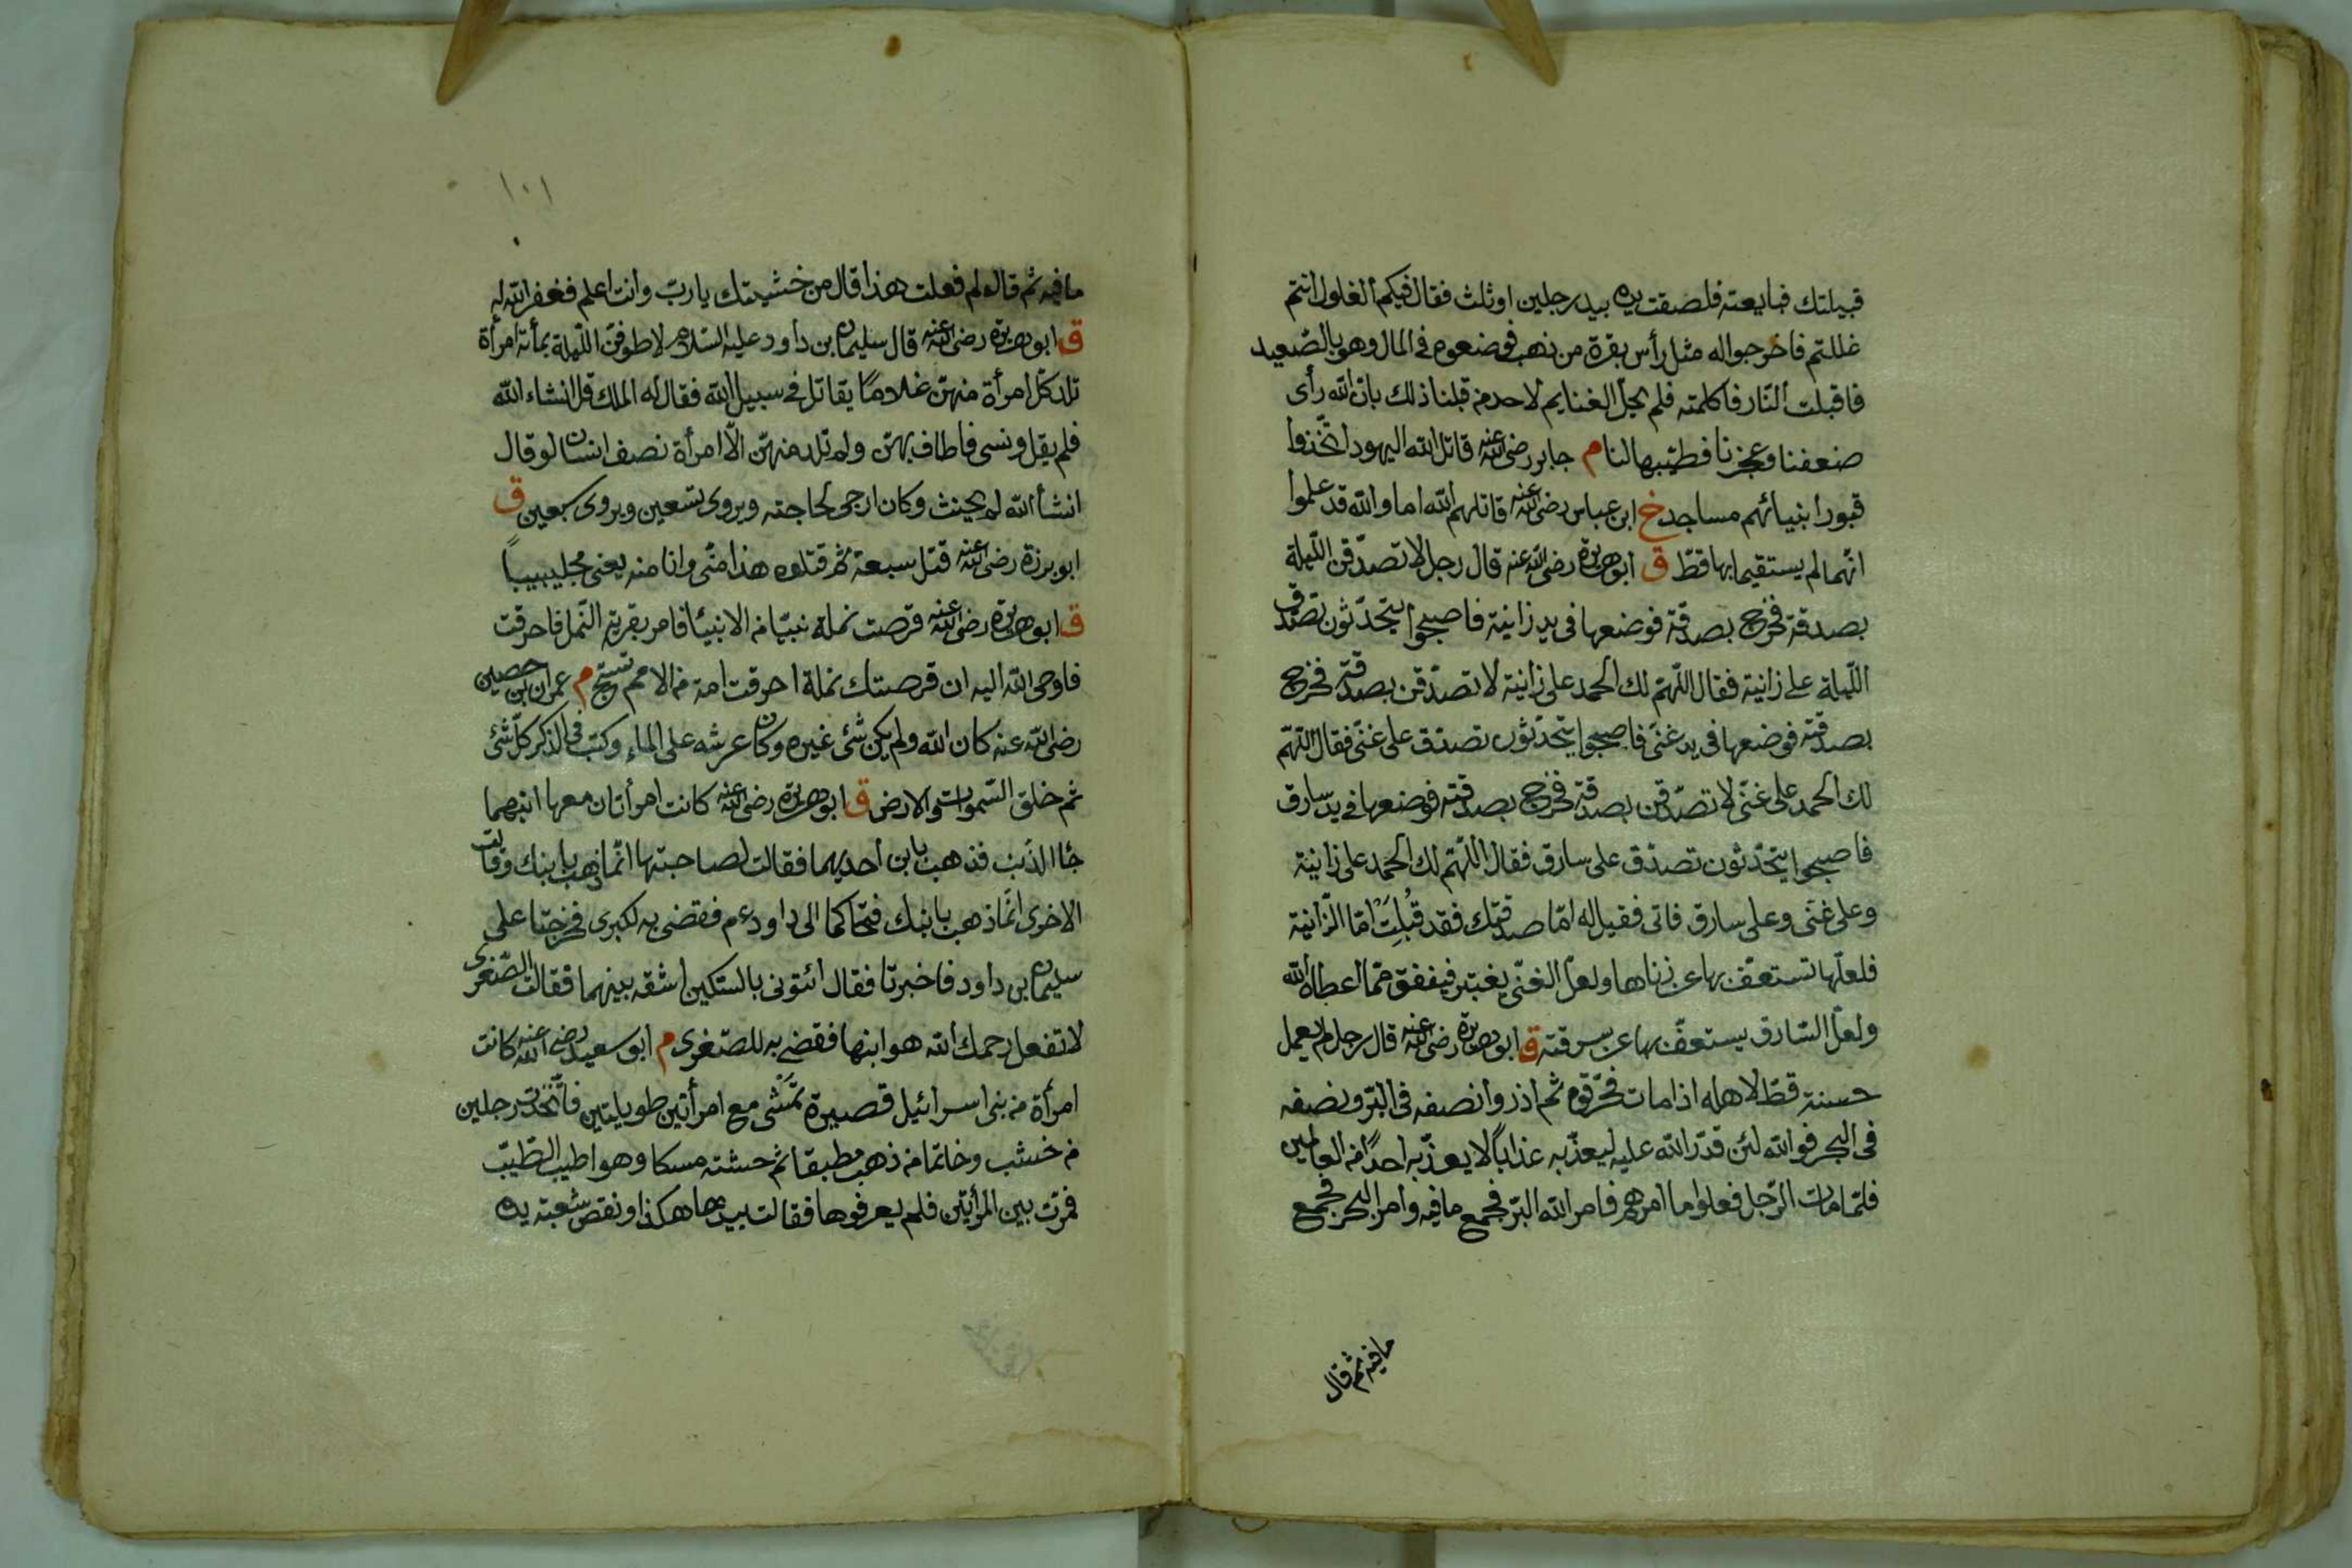 قبيلتك فبايعته فلصقت يده بيد رجلين او ثلث فقال فيكم الغلول انتم
غللتم فاخرجوا له مثل رأس بقرة من ذهب فوضعوه في المال وهو بالصّعيد
فاقبلت النّار فاكلته فلم تحل الغنايم لاحد من قبلنا ذلك بان الله رأى
ضعفنا وعجزنا فطيّبها لنا م جابر رضى الله عنه قاتل الله اليهود اتّخذوا
قبور انبيائهم مساجد خ ابن عباس رضى الله عنه قاتلهم الله اما والله قد علموا
انّهما لم يستقيما بها قطّ ق ابو هريرة رضى الله عنه قال رجل لا تصدّقن اللّيلة
بصدقة فخرج بصدقته فوضعها فى يد زانية فاصبحوا يتحدّثون تصدّق
اللّيلة على زانية فقال اللّهمّ لك الحمد على زانية لا تصدّقن بصدقة فخرج
بصدقته فوضعها فى يد غنّى فاصبحوا يتحدّثون تصدّق على غنّى فقال اللّهمّ
لك الحمد على غنّى لا تصدّقن بصدقة فخرج بصدقته فوضعها في يد سارق
فاصبحوا يتحدّثون تصدّق على سارق فقال اللّهمّ لك الحمد على زانية
وعلى غنّى وعلى سارق فاتى فقيل له امّا صدقتك فقد قُبِلَتْ امّا الزّانية
فلعلّها تستعفّ بها عن زناها ولعلّ الغنّى يعتبر فينفق ممّا اعطاه الله
ولعلّ السّارق يستعفّ بها عن سرقته ق ابو هريرة رضى الله عنه قال رجل لم يعمل
حسنة قطّ لاهله اذا مات فحرّقوه ثم اذروا نصفه فى البّر ونصفه
فى البحر فوالله لئن قدّر الله عليه ليعذّبه عذاباً لا يعذّبه احدًا من العالمين
فلمّا مات الرّجل فعلوا ما امرهم فامر الله البّر فجمع ما فيه وامر البحر فجمع
ما فيه ثم قال
١٠١
ما فيه ثم قال لم فعلت هذا قال من خشيتك يا ربّ وانت اعلم فغفر الله له
ق ابو هريرة رضى الله عنه قال سليمان بن داود عليه السّلام لاطوفنّ اللّيلة بمأئة امرأة
تلد كلّ امرأة منهنّ غلاما يقاتل فى سبيل الله فقال له الملك قل انشاء الله
فلم يقل ونسى فاطاف بهنّ ولم تلد منهنّ الّا امرأة نصف انسان لو قال
انشأ الله لم يحنث وكان ارجى لحاجته ويروى تسعين ويروى سبعين ق
ابو برزة رضى الله عنه قتل سبعة ثم قتلوه هذا منّى وانا منه يعنى جليبيباً
ق ابو هريرة رضى الله عنه قرصت نملة نبيّا من الانبيأ فامر بقرية النّمل فاحرقت
فاوحى الله اليه ان قرصتك نملة احرقت امة من الامم تسبّح م عمران بن حصين
رضى الله عنه كان الله ولم يكن شئ غيره وكان عرشه على المأء وكتب فى الذكر كلّ شئ
ثم خلق السّموات والارض ق ابو هريرة رضى الله عنه كانت امرأتان معها ابنهما
جأا الذّئب فذهب بابن احديهما فقالت لصاحبتها انّما ذهب بابنك وقالت
الاخرى انّما ذهب بابنك فتحاكما الى داود عم فقضى به لكبرى فخرجتا على
سليمان بن داود فاخبرتا فقال ائتونى بالسّكين اشقه بينهما فقالت الصّغرى
لا تفعل رحمك الله هو ابنها فقضى به للصّغرى م ابو سعيد رضى الله عنه كانت
امرأة من بنى اسرائيل قصيرة تمّشى مع امرأتين طويلتين فاتّخذت رجلين
من خشب وخاتما من ذهب مطبقا ثم حشته مسكا وهو اطيب الطّيب
فمّرت بين المرأتين فلم يعرفوها فقالت بيدها هكذا ونقض شعبته يده